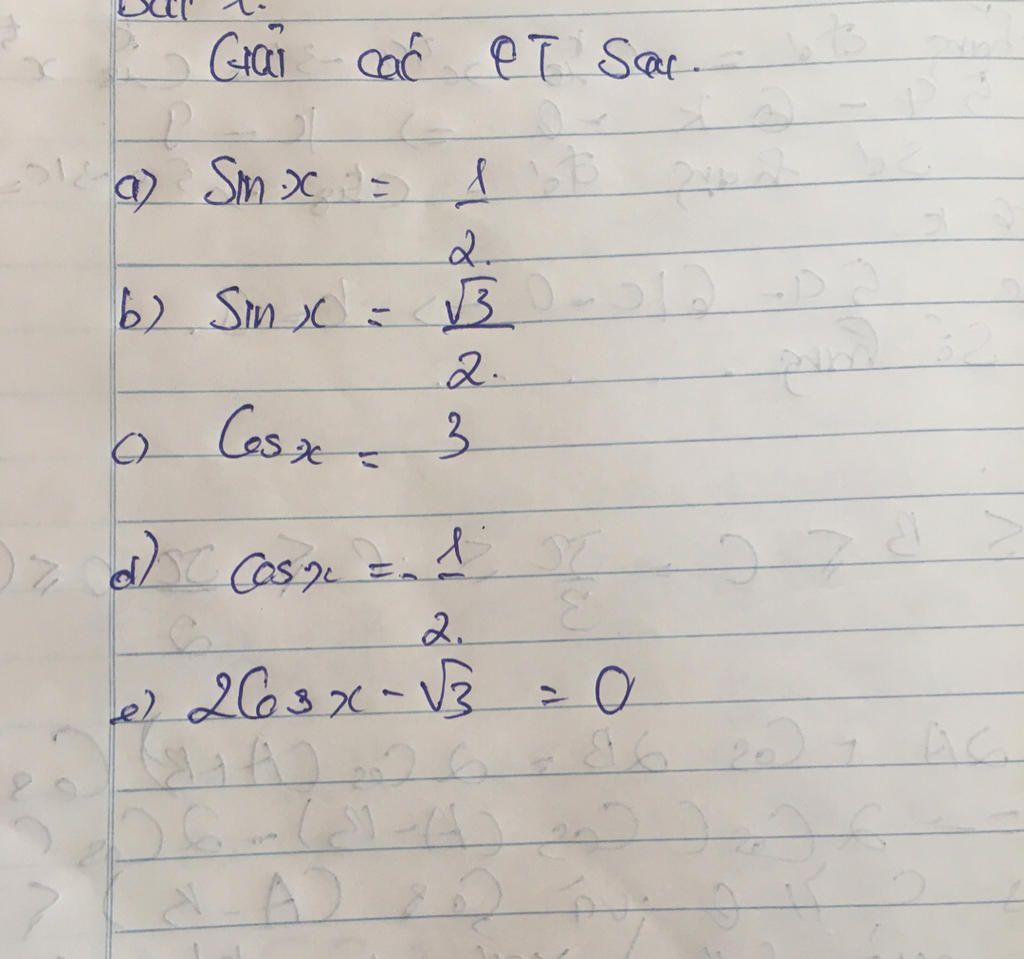 Bài 1.
Giải các PT Sau.
a) Sin x = 1/2.
b) Sin x = √3/2.
c) Cos x = 3
d) Cos x = - 1/2.
e) 2Cos x - √3 = 0